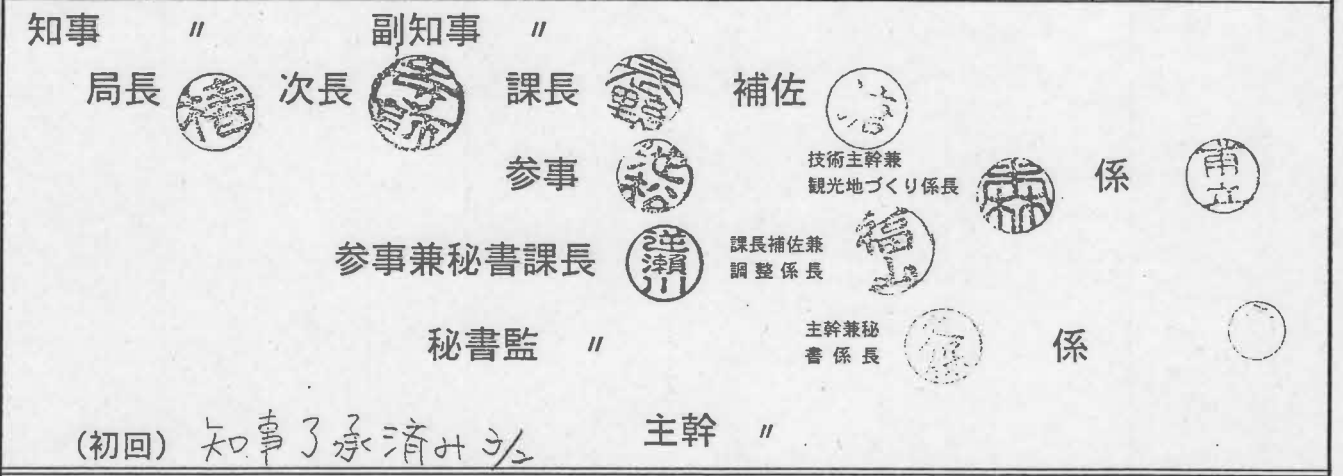 知事 〃 副知事 〃
局長 次長 課長 補佐
参事 技術主幹兼 観光地づくり係長 森 係
参事兼秘書課長 課長補佐兼 調整係長 福山
秘書監 〃 主幹兼秘 書係長 係
(初回) 知事了承済み 3/2 主幹 〃